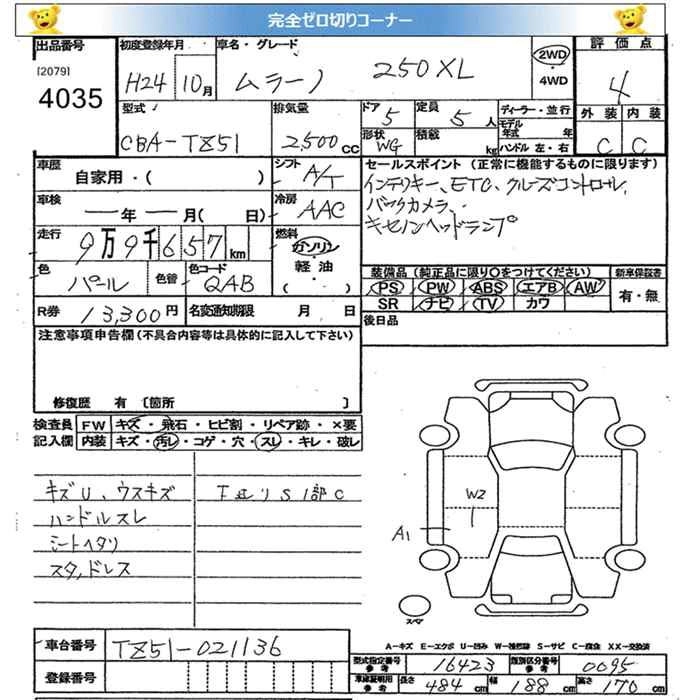 完全ゼロ切りコーナー
出品番号 初度登録年月 車名・グレード 2WD・4WD 評価点
[2079] 4035 H24 10月 ムラーノ 250XL 4
型式 排気量 ドア 定員 ディーラー・並行 外装 内装
CBA-TZ51 2,500cc 5 5人 モデル年式 年 C C
形状 WG 積載 kg ハンドル左・右
車歴 自家用・( ) シフト A/T セールスポイント (正常に機能するものに限ります)
車検 ー年ー月(日) 冷房 AAC インテリキー、ETC、クルーズコントロール、
バックカメラ、
キセノンヘッドランプ
走行 9万9千657km 燃料 ガソリン・軽油・( )
色 パール 色替 色コード QAB 装備品 (純正品に限り○をつけてください) 新車保証書
PS PW ABS エアB AW 有・無
SR ナビ TV カワ
R券 13,300円 名変通知期限 月 日 後日品
注意事項申告欄 (不具合内容等は具体的に記入して下さい)
修復歴 有 〔箇所 〕
検査員記入欄 FW キズ・飛石・ヒビ割・リペア跡・×要
内装 キズ・汚レ・コゲ・穴・スレ・キレ・破レ
キズU、ウスキズ 下廻りS1部C
ハンドルスレ
シートヘタリ
スタッドレス
W2
A1
スペア
A-キズ E-エクボ U-凹み W-補修跡 S-サビ C-腐食 XX-交換済
車台番号 TZ51-021136
登録番号
型式指定番号 参考 16423 類別区分番号 参考 0095
車庫証明用 参考 長さ 484cm 幅 188cm 高さ 170cm